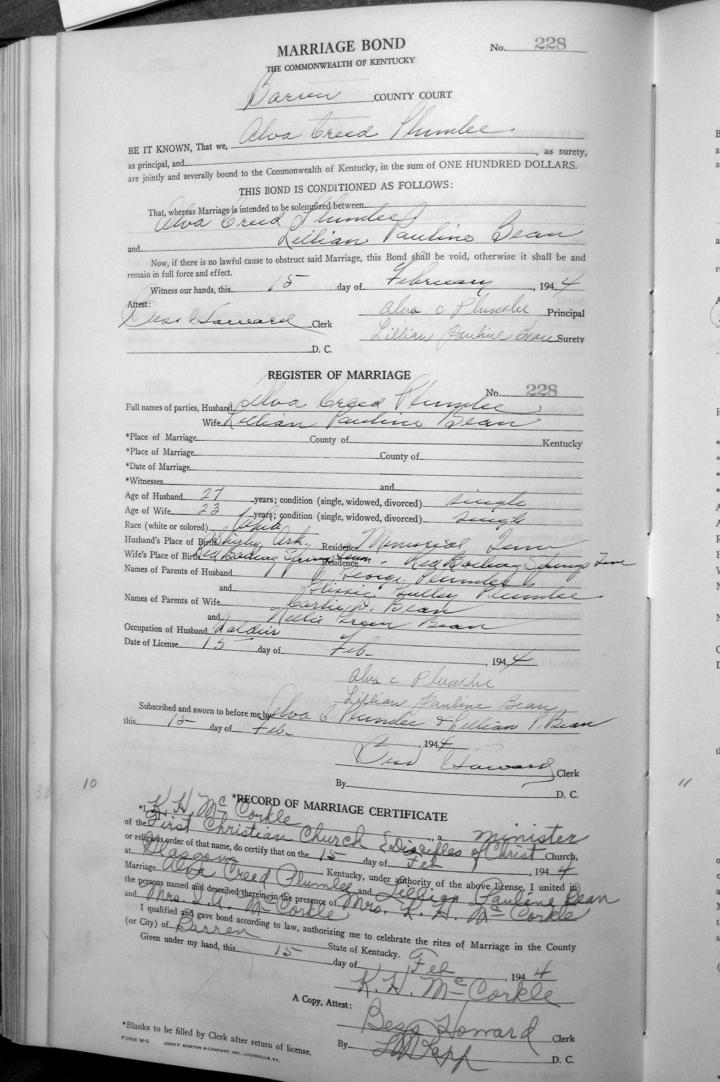 MARRIAGE BOND No. 228
THE COMMONWEALTH OF KENTUCKY
Barren COUNTY COURT
BE IT KNOWN, That we, Alva Creed Plumlee
as principal, and , as surety,
are jointly and severally bound to the Commonwealth of Kentucky, in the sum of ONE HUNDRED DOLLARS.
THIS BOND IS CONDITIONED AS FOLLOWS:
That, whereas Marriage is intended to be solemnized between
Alva Creed Plumlee
and Lillian Pauline Bean
Now, if there is no lawful cause to obstruct said Marriage, this Bond shall be void, otherwise it shall be and
remain in full force and effect.
Witness our hands, this 15 day of February, 1944
Attest: Alva C Plumlee Principal
Bess Howard Clerk
Lillian Pauline Bean Surety
D. C.
REGISTER OF MARRIAGE
No. 228
Full names of parties, Husband Alva Creed Plumlee
Wife Lillian Pauline Bean
*Place of Marriage County of Kentucky
*Place of Marriage County of
*Date of Marriage
*Witnesses and
Age of Husband 27 years; condition (single, widowed, divorced) single
Age of Wife 23 years; condition (single, widowed, divorced) single
Race (white or colored) White
Husband's Place of Birth Shirley, Ark. Residence Memorial Tenn
Wife's Place of Birth Red Boiling Springs Tenn. Residence Red Boiling Springs Tenn
Names of Parents of Husband George Plumlee
and Plumlee
Names of Parents of Wife Bean
and Nellie Green Bean
Occupation of Husband Soldier
Date of License 15 day of Feb- , 1944
Alva C Plumlee
Lillian Pauline Bean
Subscribed and sworn to before me by Alva C Plumlee & Lillian P. Bean
this 15 day of Feb- , 1944
Bess Howard Clerk
By D. C.
10
11
*RECORD OF MARRIAGE CERTIFICATE
*I, K. H. McCorkle , a minister
of the First Christian Church (Disciples of Christ Church,
or religious order of that name, do certify that on the 15 day of Feb 1944
at Glasgow Kentucky, under authority of the above License, I united in
Marriage Alva Creed Plumlee and Lillian Pauline Bean
the persons named and described therein, in the presence of Mrs. K. H. McCorkle
and Mrs. J. A. McCorkle
I qualified and gave bond according to law, authorizing me to celebrate the rites of Marriage in the County
(or City) of Barren State of Kentucky.
Given under my hand, this 15 day of Feb , 1944
K. H. McCorkle
A Copy, Attest:
Bess Howard Clerk
By D. C.
*Blanks to be filled by Clerk after return of license.
FORM M-6 JOHN P. MORTON & COMPANY, INC., LOUISVILLE, KY.